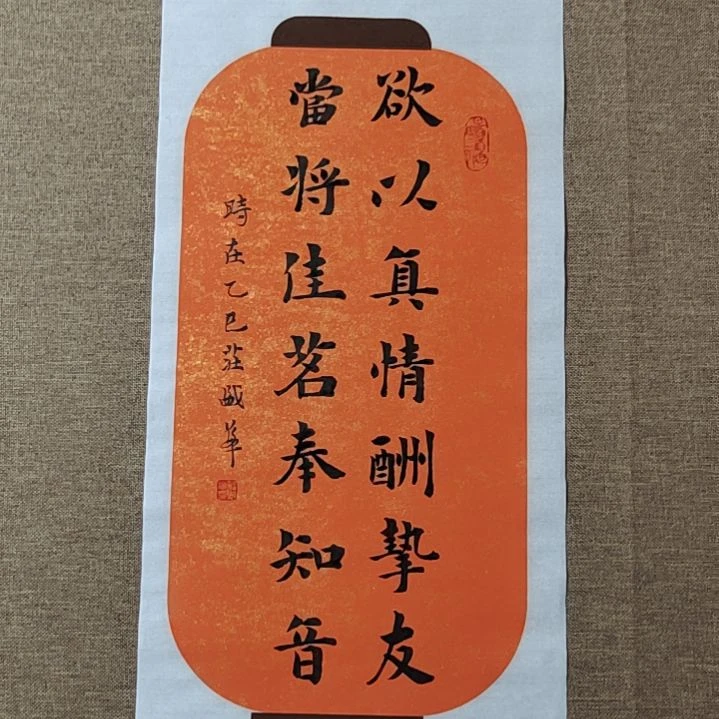 欲以真情酬挚友
當将佳茗奉知音
時在乙巳莊盛华